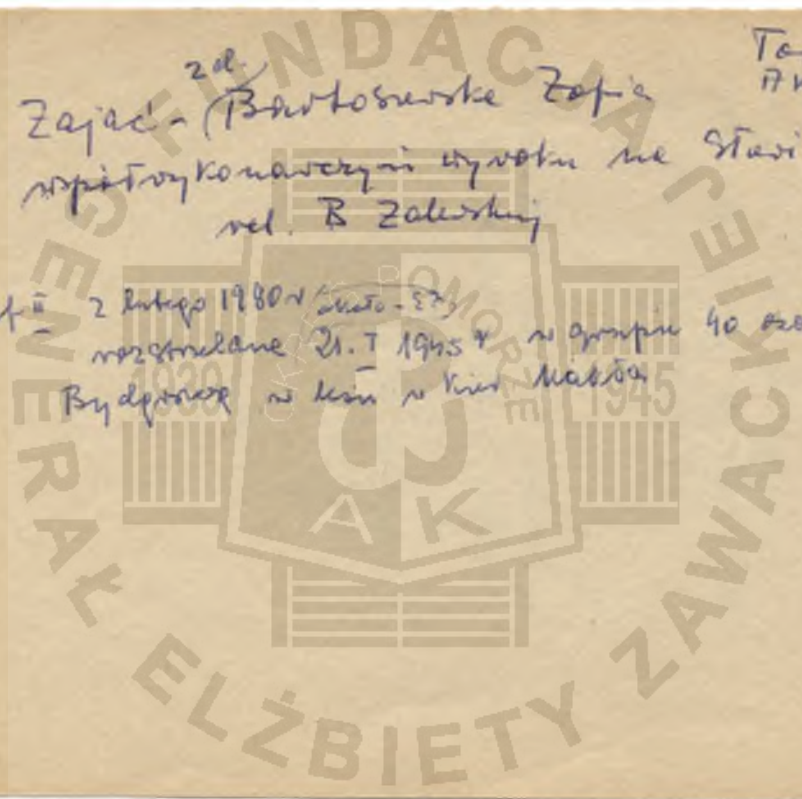 To
zd.
Zając - (Bartoszewska Zofia
współwykonawczyni wyroku na Stawi
vel. B Zalewskiej
II 2 lutego 1980 r
rozstrzelana 21. I 1945 r w grupie 40 osó
Bydgoszcz w lesie w kier
FUNDACJA
GENERAŁ ELŻBIETY ZAWACKIEJ
POMORZE
1939 1945
AK